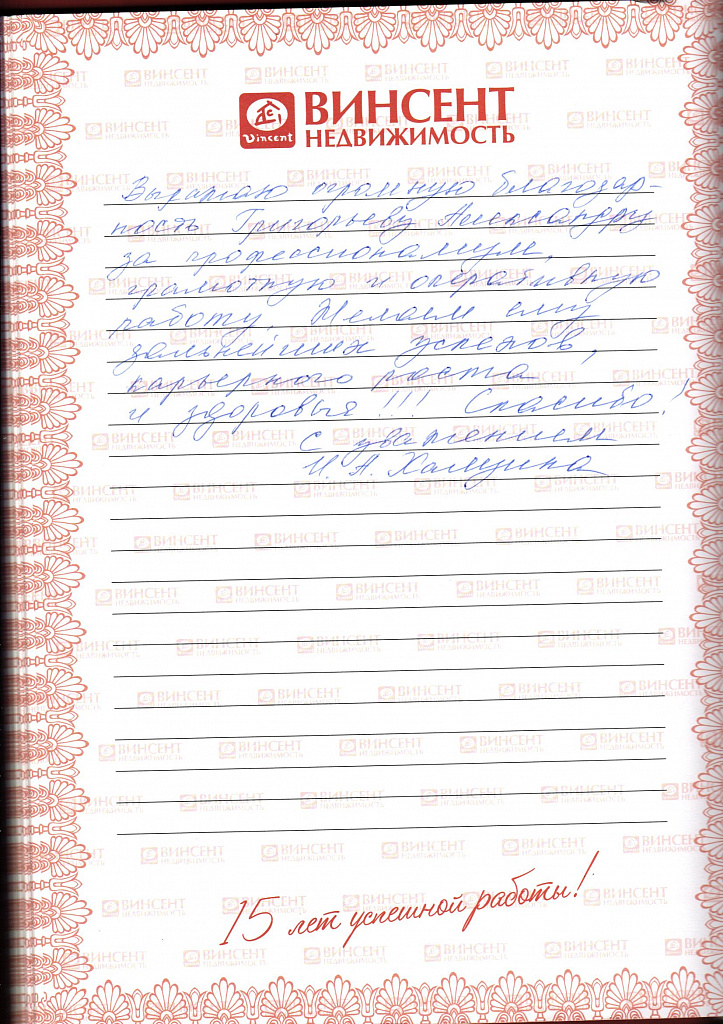 Vincent
ВИНСЕНТ
НЕДВИЖИМОСТЬ
Выражаю огромную благодар-
ность Григорьеву Александру
за профессионализм,
грамотную и оперативную
работу. Желаем ему
дальнейших успехов,
карьерного роста
и здоровья!!! Спасибо!
С уважением
И. А.
15 лет успешной работы!